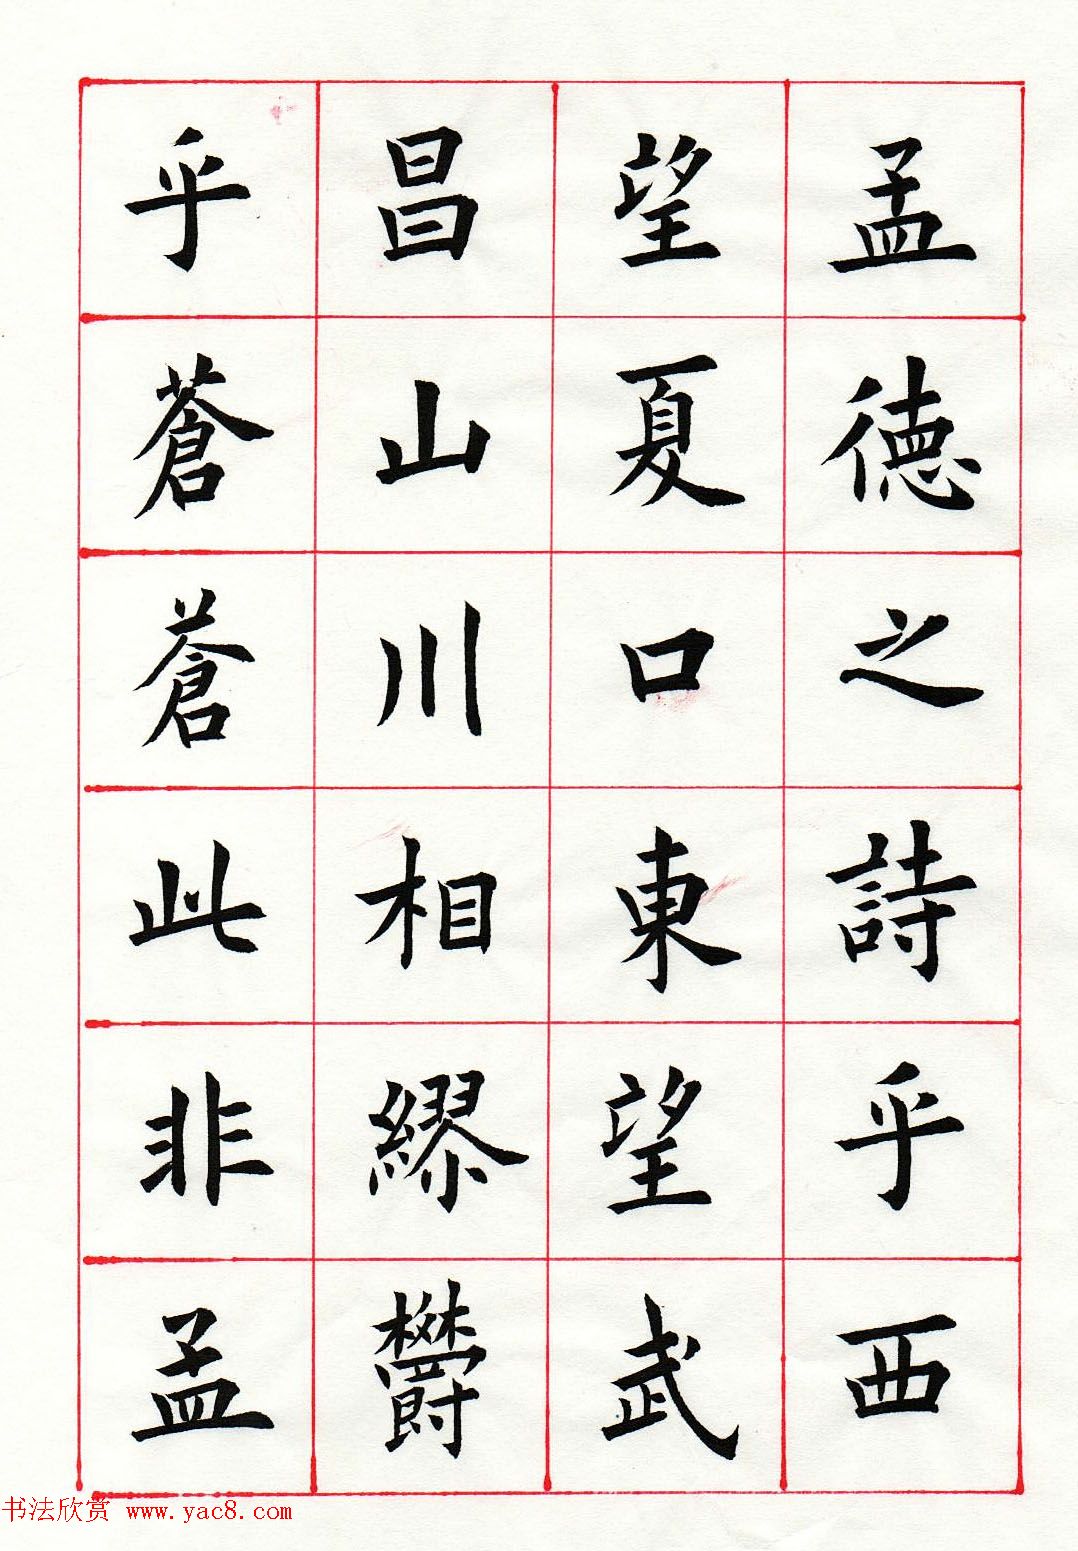 孟德之詩乎西
望夏口東望武
昌山川相繆欝
乎蒼蒼此非孟
书法欣赏 www.yac8.com